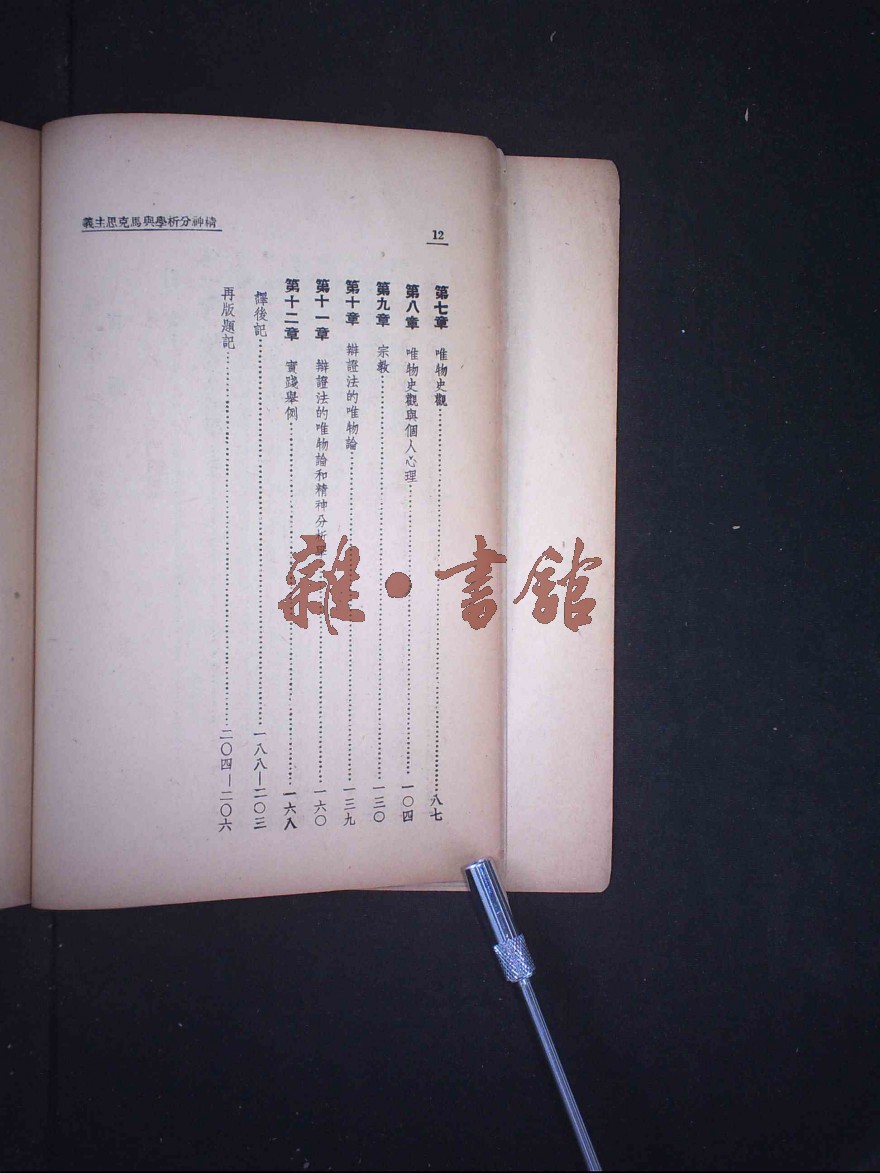 12
義主思克馬與學析分神精
第七章 唯物史觀……八七
第八章 唯物史觀與個人心理……一〇四
第九章 宗教……一三〇
第十章 辯證法的唯物論……一三九
第十一章 辯證法的唯物論和精神分析學……一六〇
第十二章 實踐舉例……一六八
譯後記……一八八—二〇三
再版題記……二〇四—二〇六
雜·書館